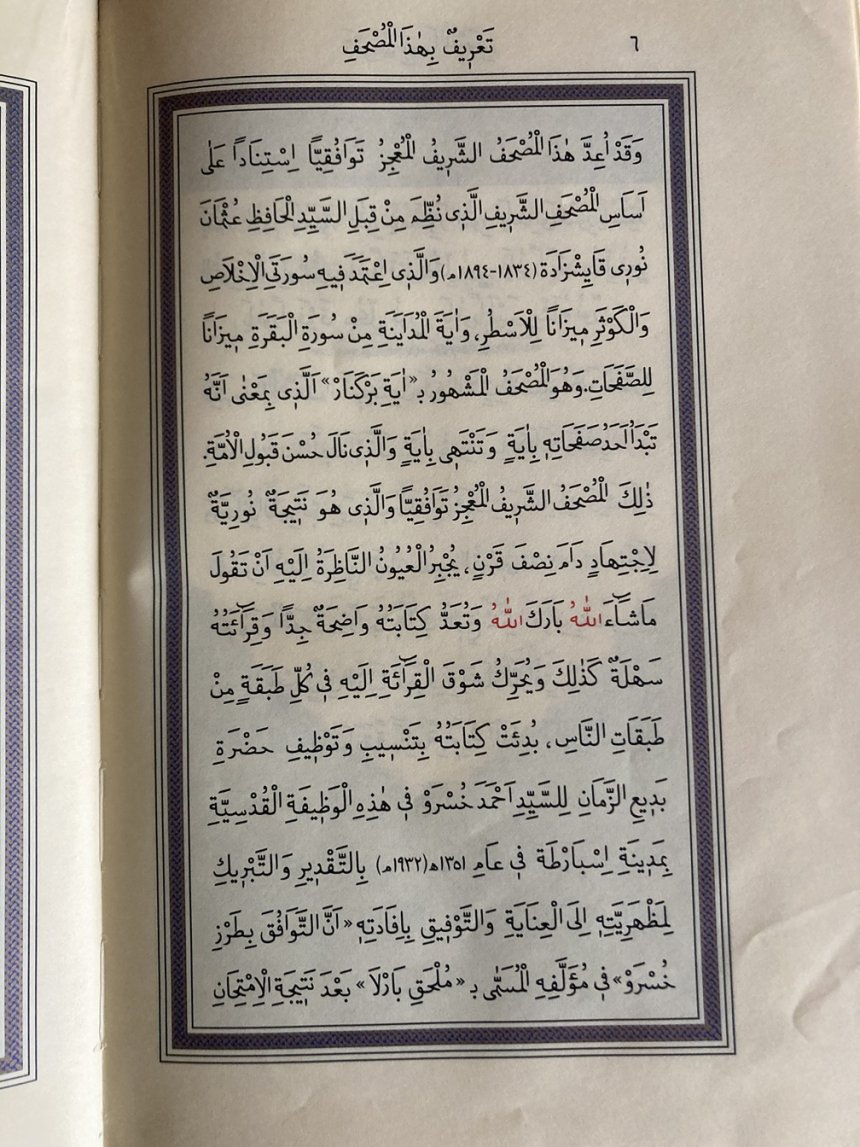 ٦ تَعْرِيفٌ بِهٰذَا الْمُصْحَفِ
وَقَدْ اُعِدَّ هٰذَا الْمُصْحَفُ الشَّرِيفُ الْمُعْجِزُ تَوَافُقِيًّا اِسْتِنَادًا عَلٰى
اَسَاسِ الْمُصْحَفِ الشَّرِيفِ الَّذِى نُظِّمَ مِنْ قِبَلِ السَّيِّدِ الْحَافِظِ عُثْمَانَ
نُورِى قَايِشْزَادَة (١٨٣٤-١٨٩٤م) وَالَّذِى اِعْتَمَدَ فِيهِ سُورَتَىِ الْاِخْلَاصِ
وَالْكَوْثَرِ مِيزَانًا لِلْاَسْطُرِ، وَاٰيَةَ الْمُدَايَنَةِ مِنْ سُورَةِ الْبَقَرَةِ مِيزَانًا
لِلصَّفَحَاتِ. وَهُوَ الْمُصْحَفُ الْمَشْهُورُ بِـ «اٰيَةِ بَرْكَنَارْ» اَلَّذِى بِمَعْنٰى اَنَّهُ
تَبْدَأُ اَحَدُ صَفَحَاتِهِ بِاٰيَةٍ وَتَنْتَهِى بِاٰيَةٍ وَالَّذِى نَالَ حُسْنَ قَبُولِ الْاُمَّةِ.
ذٰلِكَ الْمُصْحَفُ الشَّرِيفُ الْمُعْجِزُ تَوَافُقِيًّا وَالَّذِى هُوَ نَتِيجَةٌ نُورِيَّةٌ
لِاِجْتِهَادٍ دَامَ نِصْفَ قَرْنٍ، يُجْبِرُ الْعُيُونُ النَّاظِرَةُ اِلَيْهِ اَنْ تَقُولَ
مَاشَٓاءَ اللّٰهُ بَارَكَ اللّٰهُ وَتُعَدُّ كِتَابَتُهُ وَاضِحَةٌ جِدًّا وَقِرَٓائَتُهُ
سَهْلَةٌ كَذٰلِكَ وَيُحَرِّكُ شَوْقَ الْقِرَٓائَةِ اِلَيْهِ فِى كُلِّ طَبَقَةٍ مِنْ
طَبَقَاتِ النَّاسِ، بُدِئَتْ كِتَابَتُهُ بِتَنْسِيبِ وَتَوْظِيفِ حَضْرَةِ
بَدِيعِ الزَّمَانِ لِلسَّيِّدِ اَحْمَدَ خُسْرَوْ فِى هٰذِهِ الْوَظِيفَةِ الْقُدْسِيَّةِ
بِمَدِينَةِ اِسْبَارْطَة فِى عَامِ ١٣٥١ھ (١٩٣٢م) بِالتَّقْدِيرِ وَالتَّبْرِيكِ
لِمَظْهَرِيَّتِهِ اِلَى الْعِنَايَةِ وَالتَّوْفِيقِ بِاِفَادَتِهِ «اَنَّ التَّوَافُقَ بِطَرْزِ
خُسْرَوْ» فِى مُؤَلَّفِهِ الْمُسَمّٰى بِـ «مُلْحَقِ بَارْلَا» بَعْدَ نَتِيجَةِ الْاِمْتِحَانِ